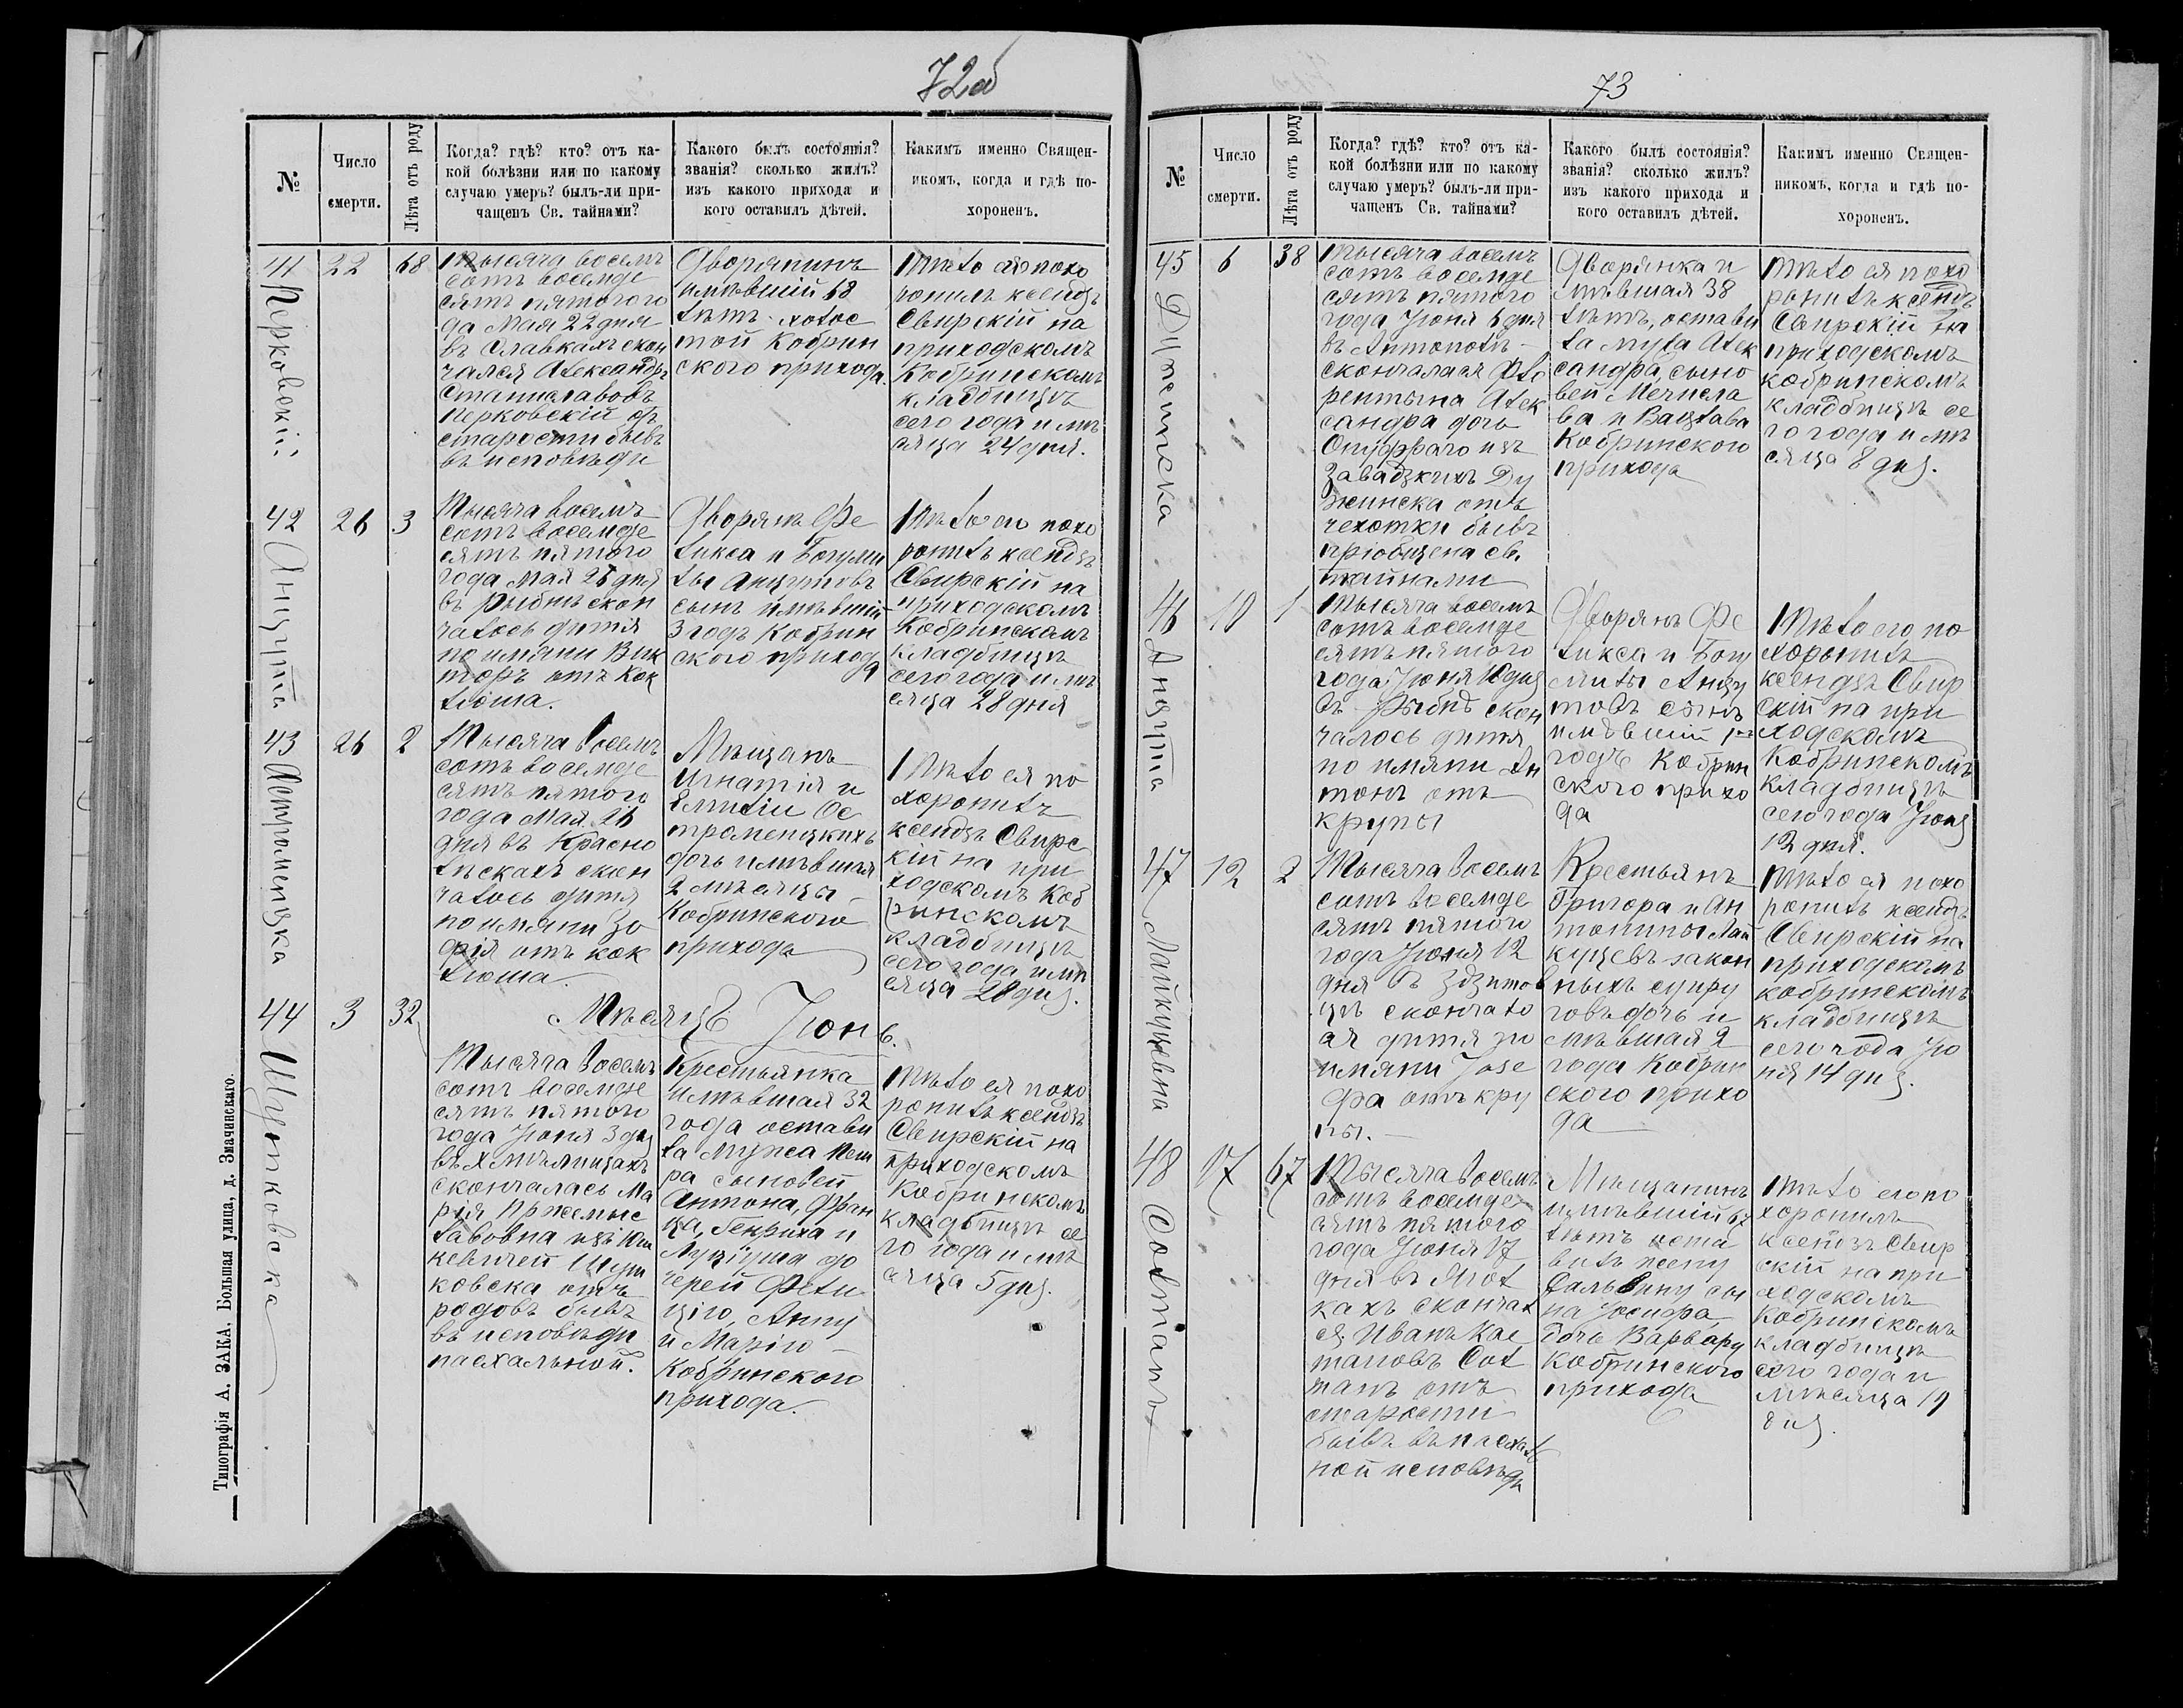 72об
№
Число
смерти.
Лѣта отъ роду
Когда? гдѣ? кто? отъ ка-
кой болѣзни или по какому
случаю умеръ? былъ-ли при-
чащенъ Св. тайнами?
Какого былъ состоянія?
званія? сколько жилъ?
изъ какого прихода и
кого оставилъ дѣтей.
Какимъ именно Священ-
никомъ, когда и гдѣ по-
хороненъ.
41
Перковскій
22
68
Тысяча восемь
сотъ восемьде
сятъ пятого го
да Мая 22 дня
въ Славкахъ скон
чался Александръ
Станиславовъ
Перковскій отъ
старости бывъ
въ исповѣди
Дворянинъ
имѣвшій 68
лѣтъ холос
той Кобрин
ского прихода.
Тѣло ея похо
ронилъ ксендзъ
Свирскій на
приходскомъ
Кобринскомъ
кладбищѣ
сего года и мѣ
сяца 24 дня.
42
Анцута
26
3
Тысяча восемь
сотъ восемьде
сятъ пятого
года Мая 26 дня
въ Рыбнѣ скон
чалось дитя
по имяни Вик
торъ отъ Кок
люша.
Дворянъ Фе
ликса и Богуми
лы Анцутовъ
сынъ имѣвшій
3 годъ Кобрин
ского прихода
Тѣло его похо
ронилъ ксендзъ
Свирскій на
приходскомъ
Кобринскомъ
кладбищѣ
сего года и мѣ
сяца 28 дня
43
Астромецка
26
2
Тысяча восемь
сотъ восемьде
сятъ пятого
года Мая 26
дня въ Красно
лѣскахъ скон
чалось дитя
по имяни Зо
фія отъ кок
люша.
Мѣщанъ
Игнатія и
Емиліи Ос
тромецкихъ
дочь имѣвшая
2 мѣсяцы
Кобринского
прихода
Тѣло ея по
хоронилъ
ксендзъ Свирс
кій на при
ходскомъ Коб
ринскомъ
кладбищѣ
сего года и мѣ
сяца 28 дня.
Мѣсяцъ Іюнь.
44
Шупковска
3
32
Тысяча восемь
сотъ восемьде
сятъ пятого
года Іюня 3 дня
въ Хмѣлищахъ
скончалась Ма
рія Пржемыс
лавовна изъ Юш
кевичей Шуп
ковска отъ
родовъ бывъ
въ исповѣди
пасхальной.
Крестьянка
имѣвшая 32
года остави
ла мужа Пет
ра сыновей
Антона, Фран
ца, Генриха и
Луціуша до
черей Фели
цію, Анну
и Марію
Кобринского
прихода.
Тѣло ея похо
ронилъ ксендзъ
Свирскій на
приходскомъ
Кобринскомъ
кладбищѣ се
го года и мѣ
сяца 5 дня.
Типографія А. ЗАКА. Большая улица, д. Змачинскаго.
73
№
Число
смерти.
Лѣта отъ роду
Когда? гдѣ? кто? отъ ка-
кой болѣзни или по какому
случаю умеръ? былъ-ли при-
чащенъ Св. тайнами?
Какого былъ состоянія?
званія? сколько жилъ?
изъ какого прихода и
кого оставилъ дѣтей.
Какимъ именно Священ-
никомъ, когда и гдѣ по-
хороненъ.
45
6
38
Тысяча восемь
сотъ восемьде
сятъ пятого
года Іюня 6 дня
въ Антополѣ
скончалася Фло
рентына Алек
сандра дочь
Онуффраго изъ
Завадзкихъ Ду
жинска отъ
чехотки бывъ
пріобщена св.
тайнами
Дворянка и
мѣвшая 38
лѣтъ, остави
ла мужа Алек
сандра, сыно
вей Мечисла
ва и Вацлава
Кобринского
прихода
Тѣло ея похо
ронилъ ксендзъ
Свирскій на
приходскомъ
кобринскомъ
кладбищѣ се
го года и мѣ
сяца 8 дня.
46
Анцута
10
1
Тысяча восемь
сотъ восемьде
сятъ пятого
года Іюня 10 дня
въ Рыбнѣ скон
чалось дитя
по имяни Ан
тонъ отъ
крупы
Дворянъ Фе
ликса и Богу
милы Анцу
товъ сынъ
имѣвшій 1
годъ Кобрин
ского прихо
да
Тѣло его по
хоронилъ
ксендзъ Свир
скій на при
ходскомъ
Кобринскомъ
кладбищѣ
сего года Іюня
12 дня.
47
Лайкуцевна
12
2
Тысяча восемь
сотъ восемьде
сятъ пятого
года Іюня 12
дня въ Здзитов
цѣ скончало
ся дитя по
имяни Юзе
фа отъ кру
пы.
Крестьянъ
Григора и Ан
тонины Лай
куцевъ закон
ныхъ супру
говъ дочь и
мѣвшая 2
года Кобрин
ского прихо
да
Тѣло ея похо
ронилъ ксендзъ
Свирскій на
приходскомъ
кобринскомъ
кладбищѣ
сего года Ію
ня 14 дня.
48
Солтанъ
17
67
Тысяча восемь
сотъ восемьде
сятъ пятого
года Іюня 17
дня въ
кахъ скончал
ся Иванъ Кае
тановъ Сол
танъ отъ
старости
бывъ въ пасхаль
ной исповѣди
Мѣщанинъ
имѣвшій 67
лѣтъ оста
вилъ жену
Сальвину сы
на Іосифа,
дочь Варвару
Кобринского
прихода
Тѣло его по
хоронилъ
ксендзъ Свир
скій на при
ходскомъ
Кобринскомъ
кладбищѣ
сего года и
мѣсяца 19
дня.